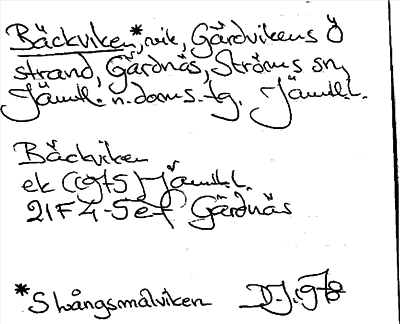 Bäckviken*, vik, Gärdvikens Ö
strand, Gärdnäs, Ströms sn,
Jämtl. n. doms. tg. Jämtl. l.
Bäckviken
ek (1975) Jämtl. l.
21F 4-5 e f Gärdnäs
*Skångsmålviken DJ. 1978